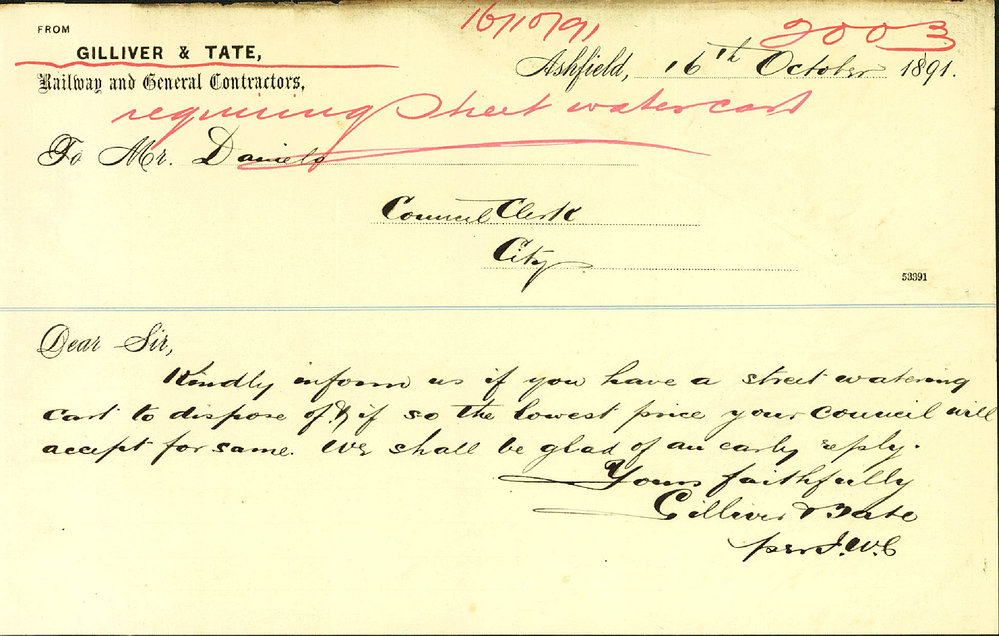 16/10/91
2003
FROM
GILLIVER & TATE,
Railway and General Contractors,
Ashfield, 16th October 1891.
requiring street water cart
To Mr. Daniels
Council Clerk
City
53391
Dear Sir,
Kindly inform us if you have a street watering
cart to dispose of & if so the lowest price your council will
accept for same. We shall be glad of an early reply.
Yours faithfully
Gilliver & Tate
per J.W.C